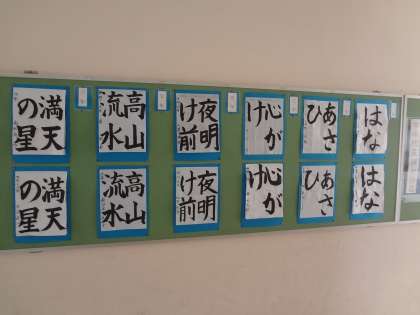 満天
の星
高山
流水
夜明
け前
心が
け
あさ
ひ
はな
満天
の星
高山
流水
夜明
け前
心が
け
あさ
ひ
はな